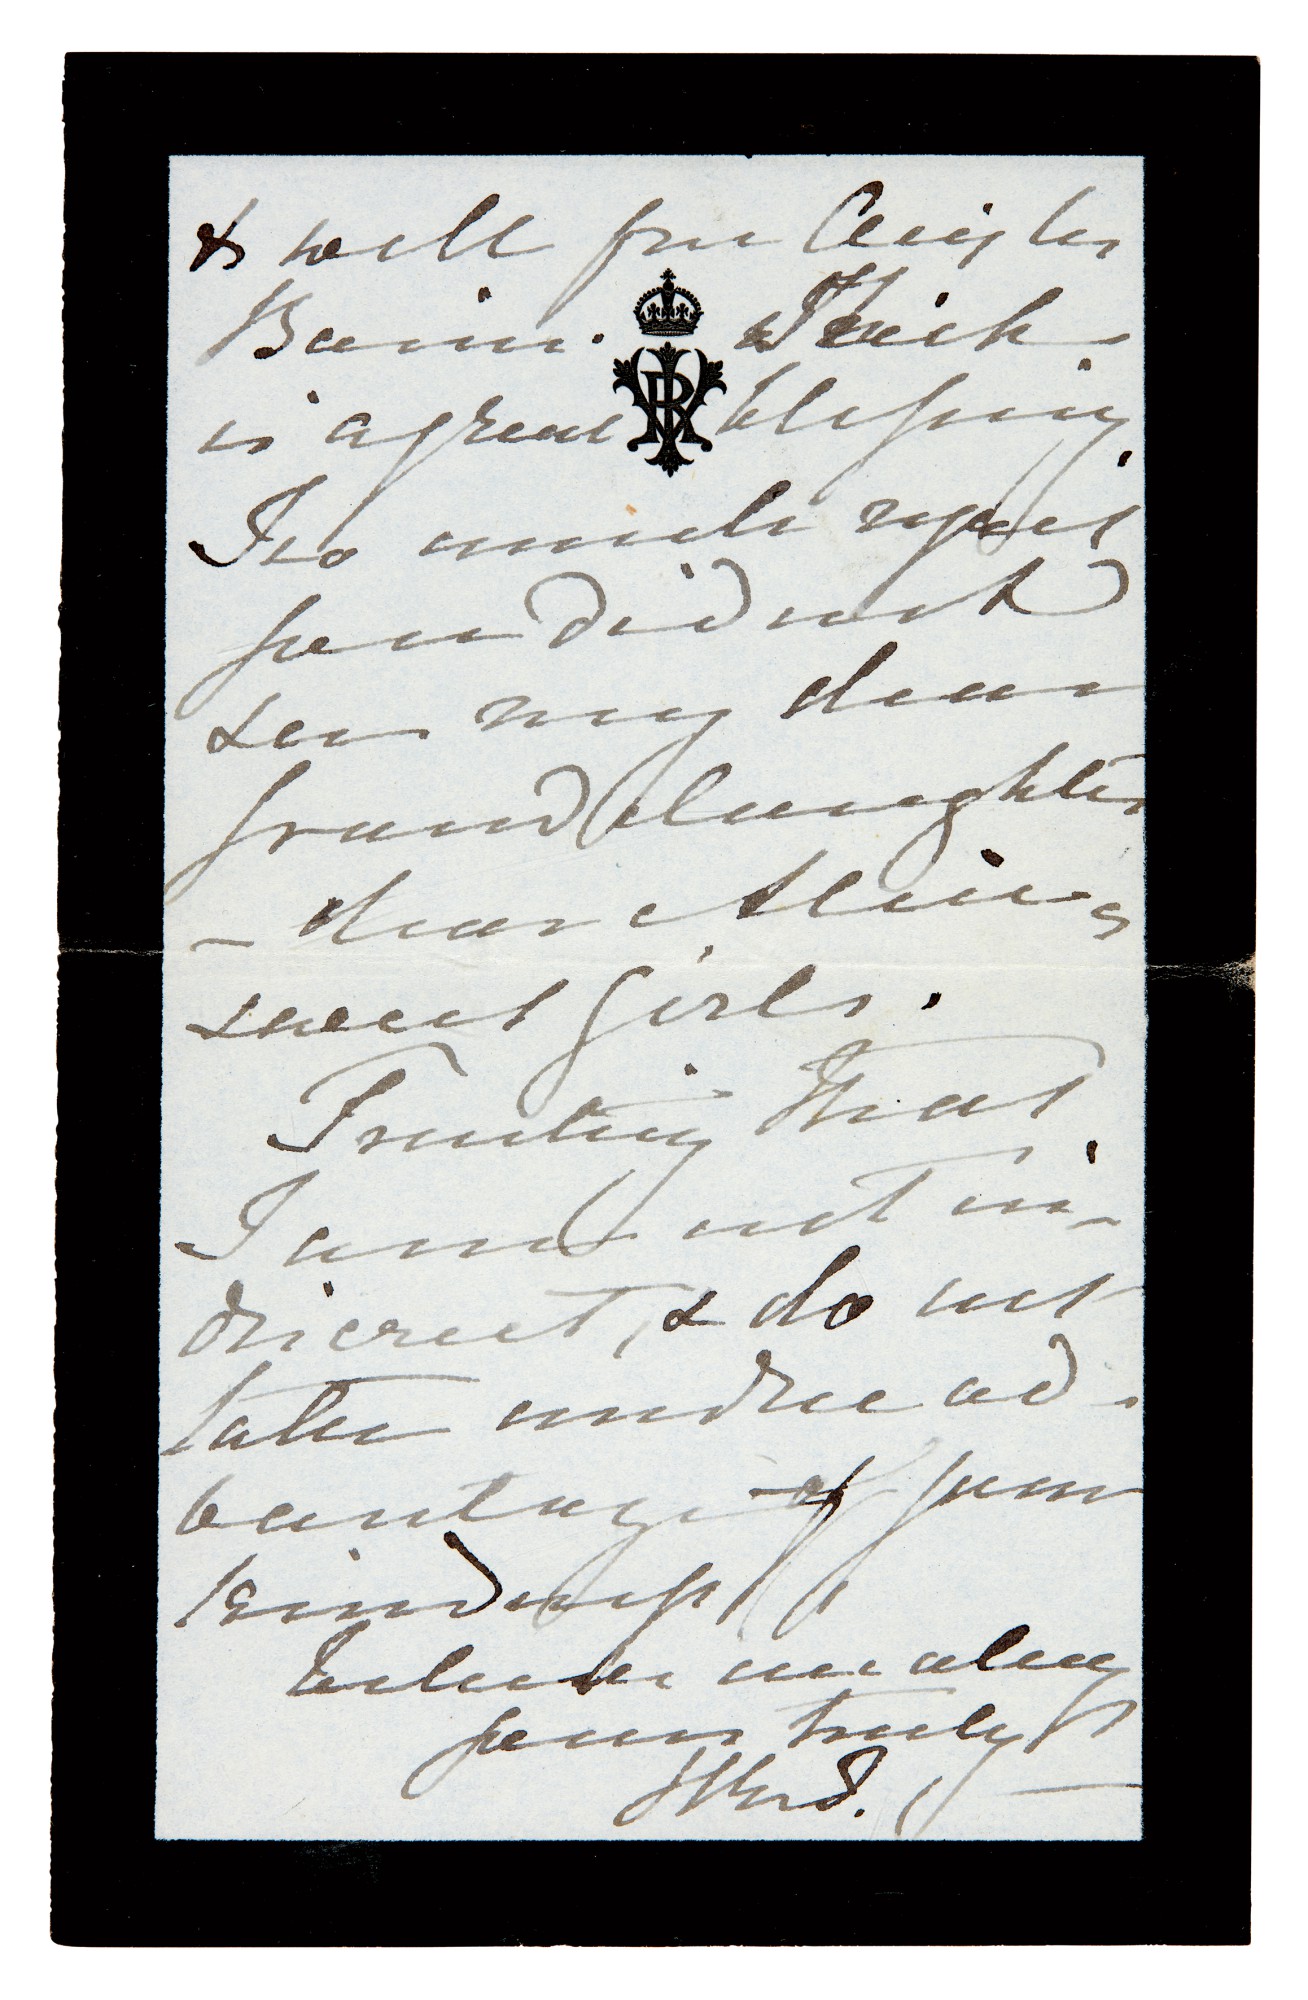 & well from Aix les
Bains. Which
is a great blessing.
I so much regret
you did not
see my dear
Granddaughters
- dear Alice's
sweet girls.
Trusting that
I am not in-
discreet, & do not
take undue ad-
vantage of your
kindness,
Believe me always
yours truly